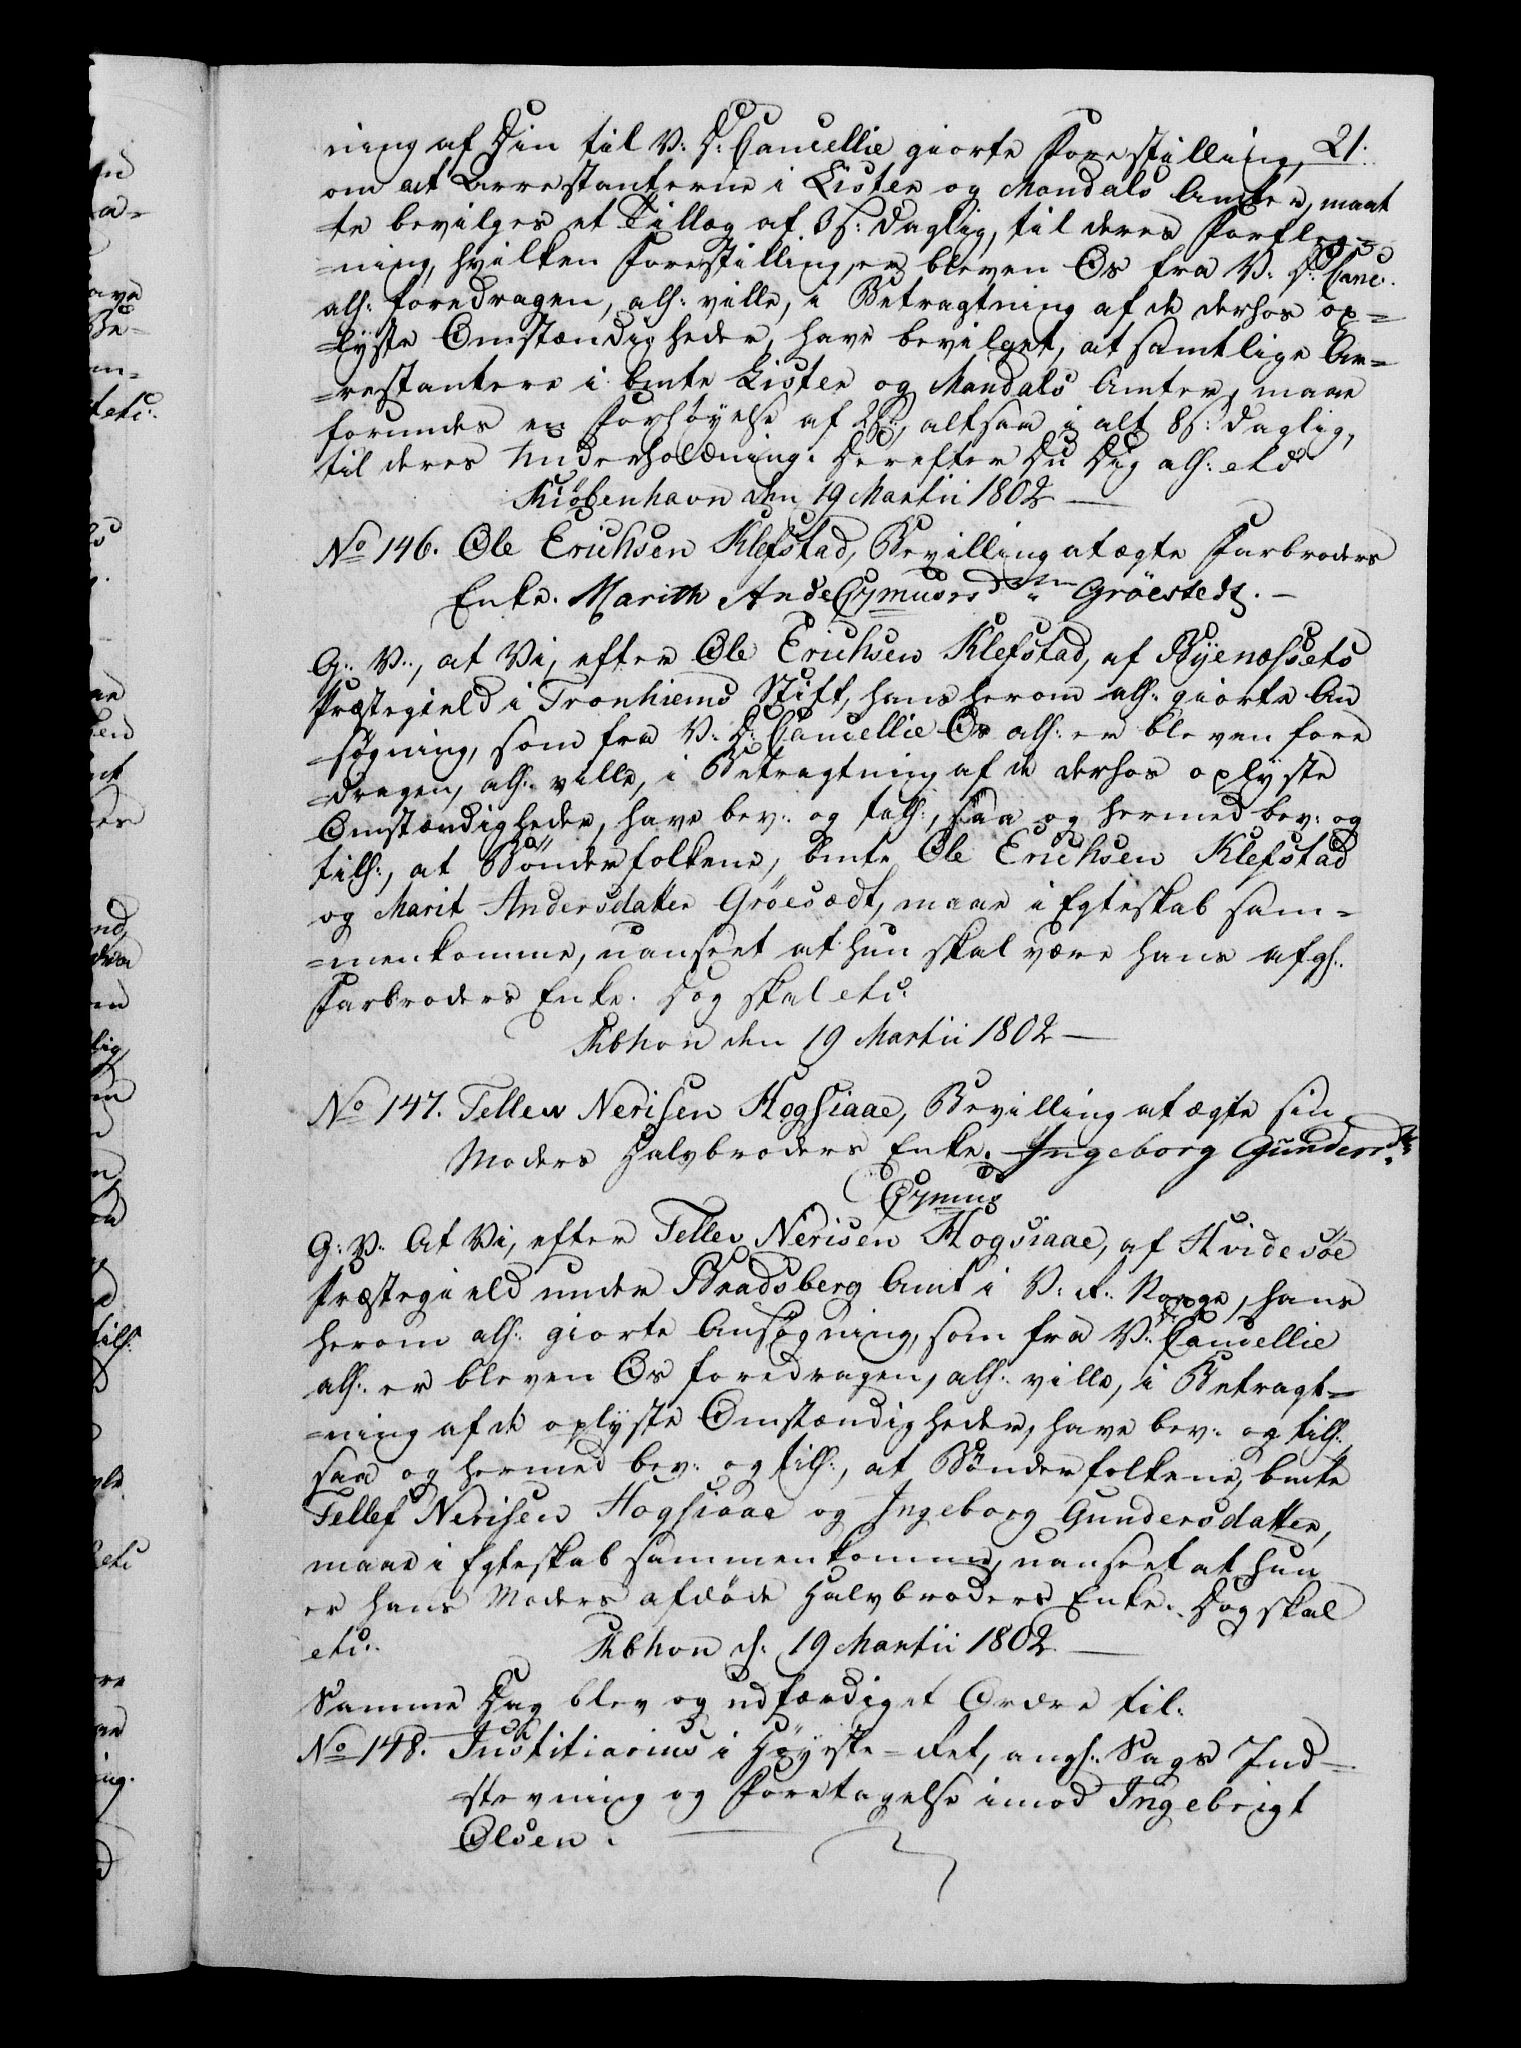 ning af Din til V: D: Cancellie giorte Forestilling, 21.
om at Arrestanterne i Lister og Mandals Amter, maat
te bevilges et Tillæg af 3 s: daglig, til deres Forfleg=
=ning, hvilken Forestilling, er bleven Os fra V: D: Canc:
alh: foredragen, alh: ville, i Betragtning af de derhos op=
=lyste Omstændigheder, have bevilget, at samtlige Ar=
=restantere i bmte Lister og Mandals Amter, maae
forundes en Forhøyelse af 2 s:, altsaa i alt 8 s: daglig,
til deres Underholdning. Derefter Du Dig alh: etc
Kiöbenhavn den 19 Martii 1802
No 146. Ole Erichsen Klefstad, Bevilling at ægte Farbroders
Enke. Marith Ande Gröestedt.
G: V:, at Vi, efter Ole Erichsen Klefstad, af Byenæssets
Præstegield i Tronhiems Stift, hans herom alh: giorte An
søgning, som fra V: D: Cancellie Os alh: er bleven fore
=dragen, alh: ville, i Betragtning af de derhos oplyste
Omstændigheder, have bev: og talh:, saa og hermed bev: og
tilh:, at Bönderfolkene, bmte Ole Erichsen Klefstad
og Marit Andersdatter Gröesædt, maae i Egteskab sam=
=menkomme, uanseet at hun skal være hans afg:
Farbroders Enke. Dog skal etc:
Kbhvn den 19 Martii 1802
No 147. Tellew Nerisen Hogsiaae, Bevilling at ægte sin
Moders Halvbroders Enke. Ingeborg Gundersd:
G: V: At Vi, efter Tellev Nerisen Hogsiaae, af Hvidesöe
Præstegield under Bradsberg Amt i V: R: Norge, hans
herom alh: giorte Ansøgning, som fra V: D: Cancellie
alh: er bleven Os foredragen, alh: ville, i Betragt=
=ning af de oplyste Omstændigheder, have bev: og tilh:,
saa og hermed bev: og tilh:, at Bönderfolkene, bmte
Tellef Nerisen Hogsiaae og Ingeborg Gundersdatter,
maae i Egteskab sammenkomme, uanseet at hun
er hans Moders afdöde Halvbroders Enke. Dog skal
etc: Kbhvn d: 19 Martii 1802
Samme Dag blev og udfærdiget Ordre til:
No 148. Justitiarius i Høyeste=Ret, angh: Sags Ind=
stevning og Foretagelse imod Ingebrigt
Olsen.